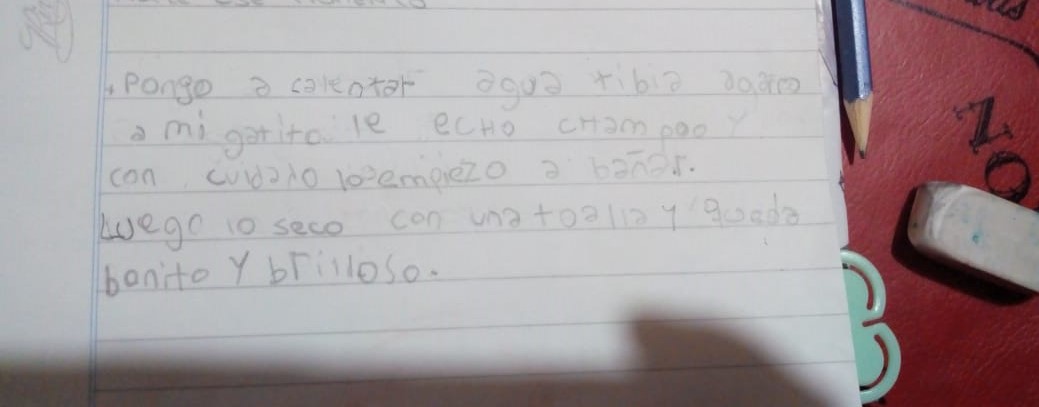 Pongo a calentar agua tibia agarro
a mi gatito le echo champoo y
con cuidado lo empiezo a bañar.
Luego lo seco con una toalla y queda
bonito y brilloso.
NO